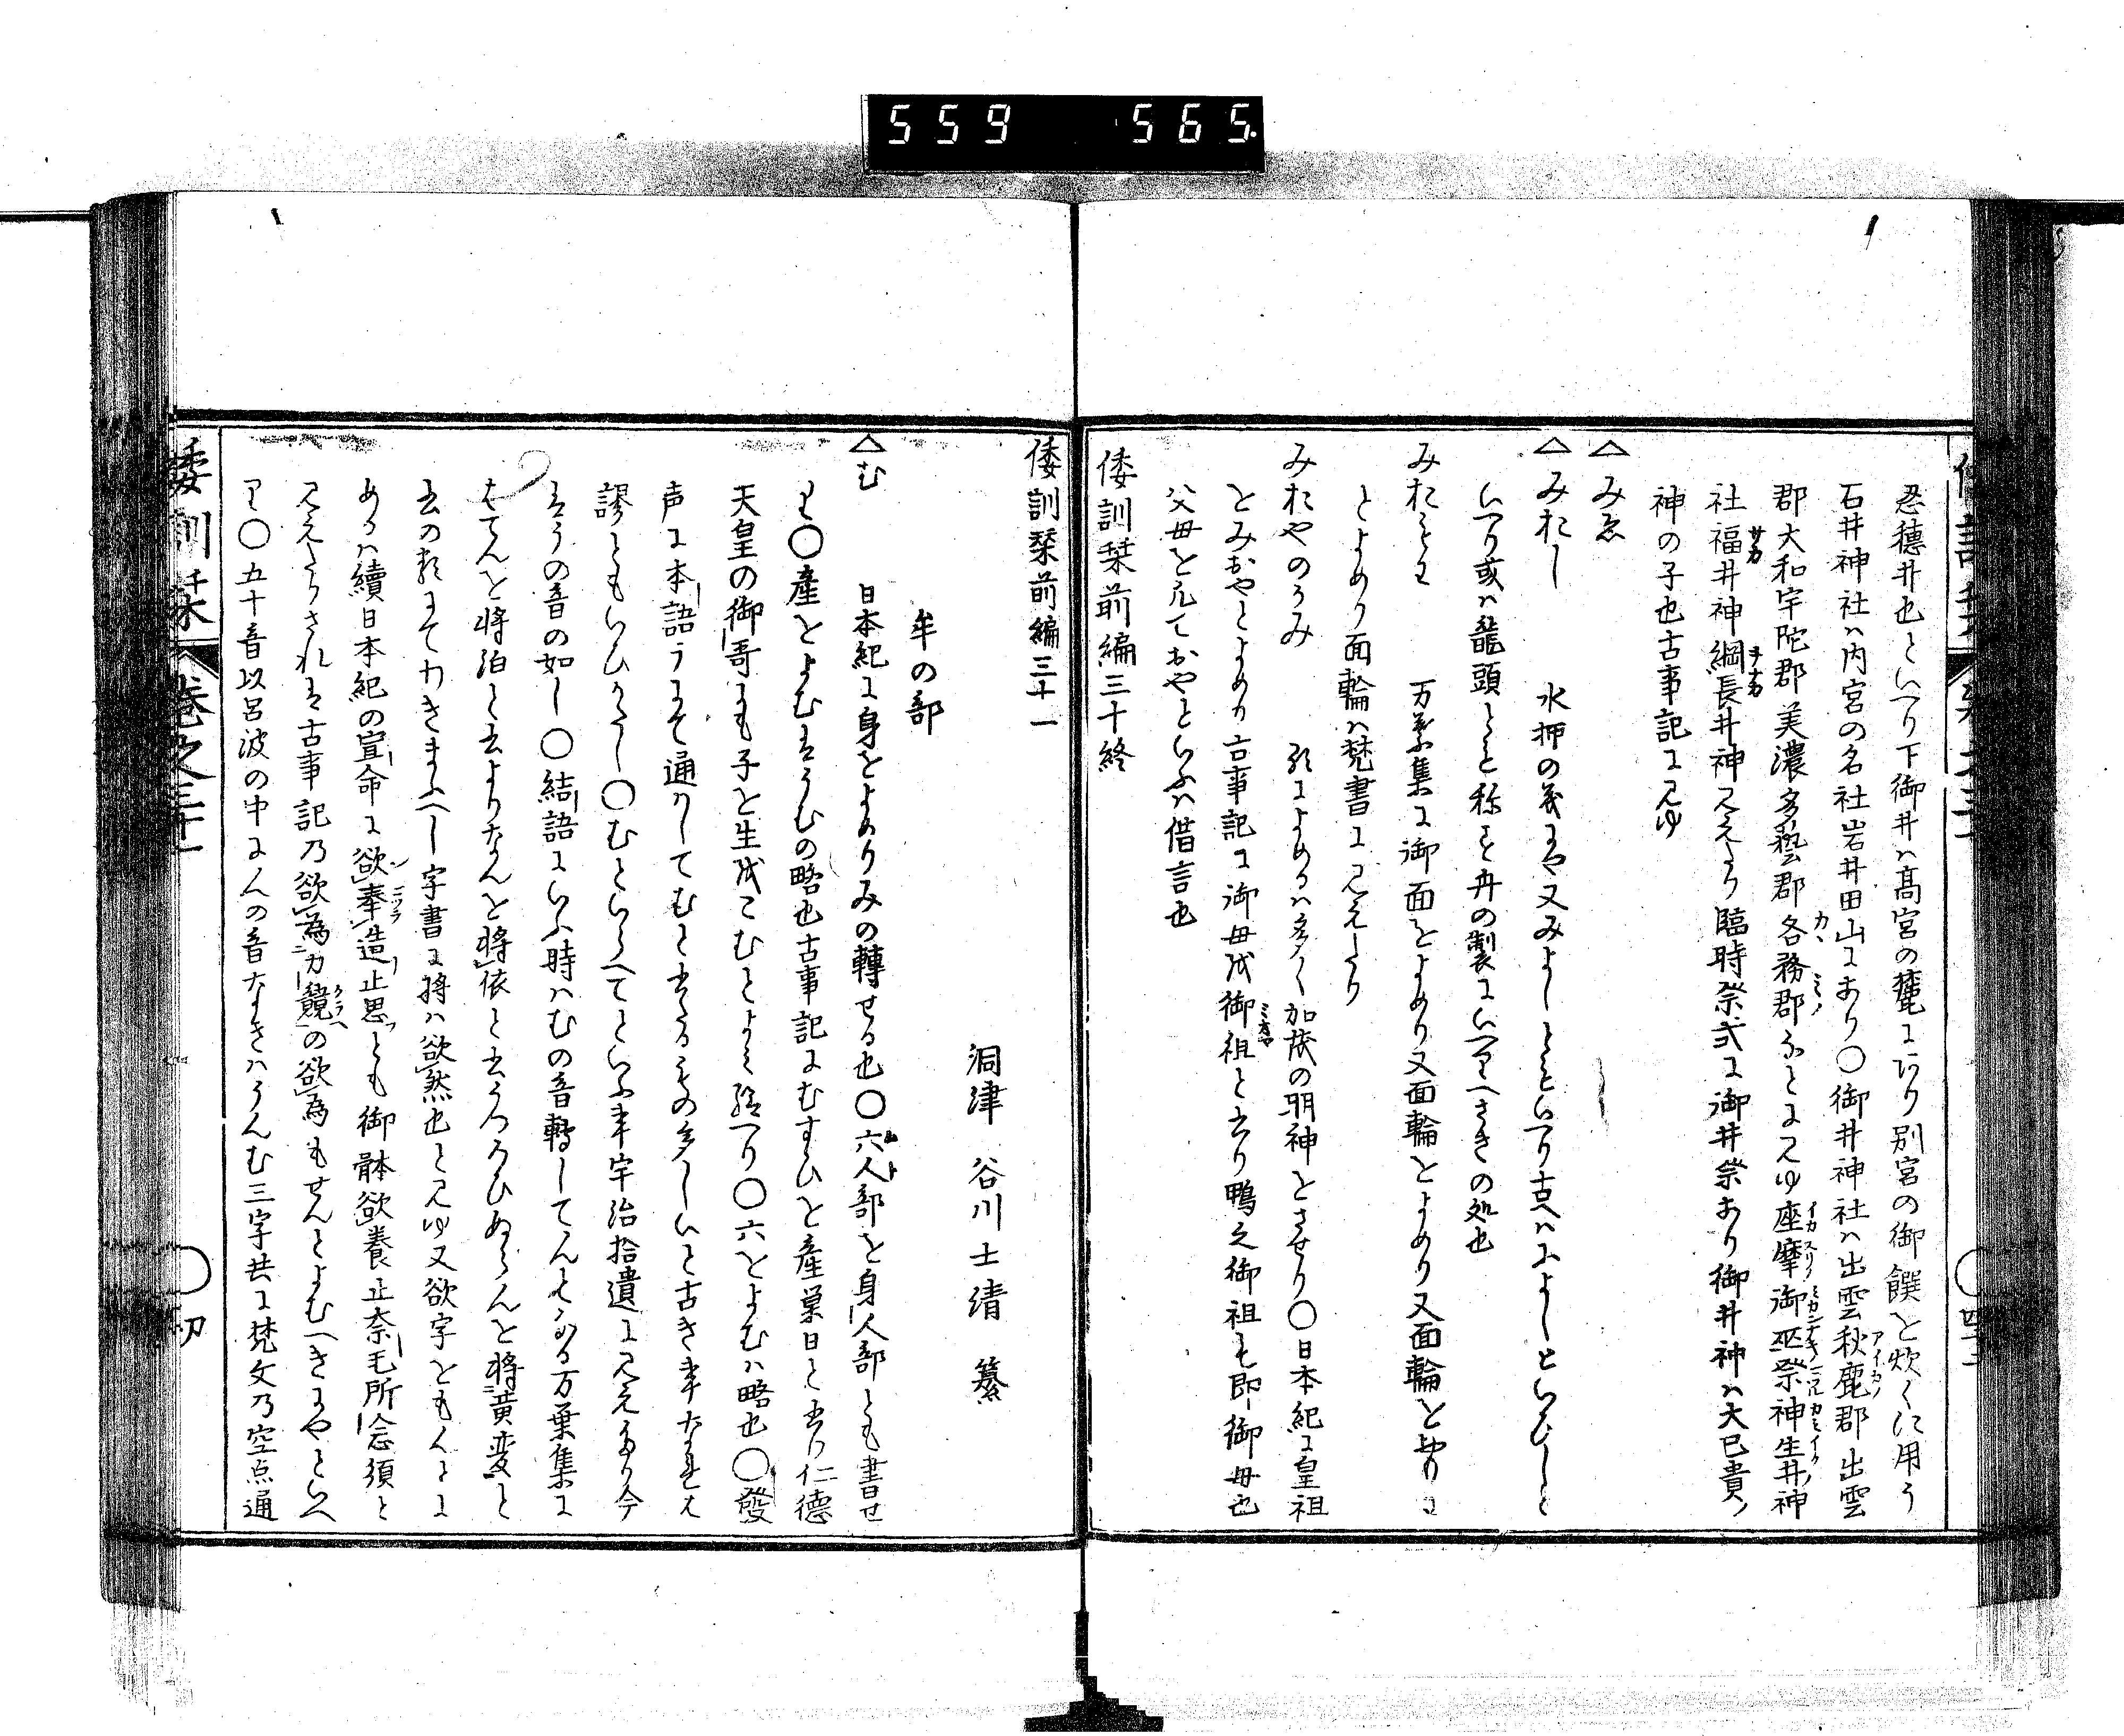 559 565.
忍穗井也といへり下御井ハ高宮の麓にあり別宮の御饌を炊くに用う
石井神社ハ内宮の名社岩井田山にあり〇御井神社ハ出雲秋鹿郡出雲
郡大和宇陀郡美濃多藝郡各務郡なとに見ゆ座摩御巫祭神生井神
社福井神綱長井神見えたり臨時祭式に御井祭あり御井神ハ大巳貴ノ
神の子也古事記に見ゆ
△みゑ
△みおし 水押の義にや又みよしともいへり古ハみよしといひしと
いへり或ハ龍頭とも称す舟の製にいへりへさきの処也
みおもわ 万葉集に御面とよめり又面輪とよめり又面輪と
とよめり面輪ハ梵書に見えたり
みおやのうみ 加茂の明神とさせり〇日本紀に皇祖
とみおやとよめり古事記に御母を御祖と云り鴨之御祖も即御母也
父母を凡ておやといふハ借言也
倭訓栞前編三十終
倭訓栞前編三十一
洞津 谷川士清 纂
牟の部
△む 日本紀に身をよめりみの轉せる也〇六人部を身人部とも書せ
り〇産をよむはうむの略也古事記にむすひを産巣日と云り仁德
天皇の御哥にも子を生をこむとよミ給へり〇六をよむハ略也〇發
声に本語うにて通ハしてむと云るもの多しいと古き事なれは
謬ともいひかたし〇むというへてといふ事宇治拾遺に見えたり今
はうの音の如し〇結語にいふ時ハむの音轉してんとなる万葉集に
はてんを将泊と云よりなんを将依と云うつろひぬらんを将黄変と
云の類にてわきまふへし字書に将ハ欲然也と見ゆ又欲字ともんとに
あるハ續日本紀の宣命に欲奉造止思とも御躰欲養止奈毛所念須と
見えたりされは古事記乃欲為力競の欲為もせんとよむへきにやといへ
り〇五十音以呂波の中にんの音なきハうんむ三字共に梵文乃空点通
倭訓栞 卷之三十一